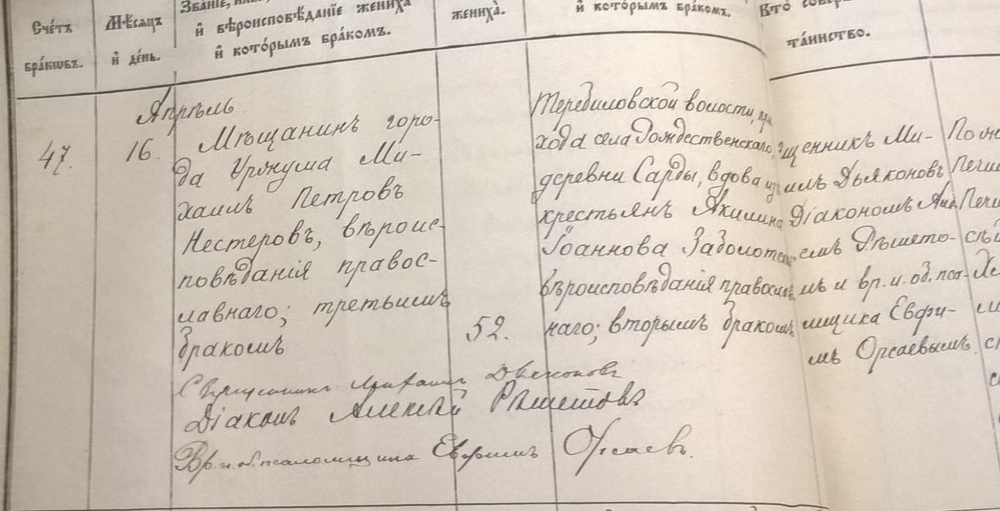 Счетъ браковъ.
Мѣсяцъ и день.
Званіе,
и вѣроисповѣданіе жениха
и которымъ бракомъ.
жениха.
и которымъ бракомъ.
Кто
таинство.
Апрѣль
47.
16.
Мѣщанинъ горо-
да Уржума Ми-
хаилъ Петровъ
Нестеровъ, вѣроис-
повѣданія правос-
лавнаго; третьимъ
бракомъ
52.
Теребиловской волости,
хода села Рождественскаго,
деревни Сарды, вдова
крестьянъ Акилина
Іоаннова Заболотс
вѣроисповѣданія правосла
наго; вторымъ бракомъ
щенникъ Ми-
илъ Дьяконовъ
Діакономъ
емъ Рѣшето-
мъ и вр. и. об. пса-
мщика Евфи-
мъ Орсаевымъ.
Священникъ Михаилъ Дьяконовъ
Діаконъ Алексѣй Рѣшетовъ
Вр. и. об. псаломщика Евфимъ Орсаевъ.